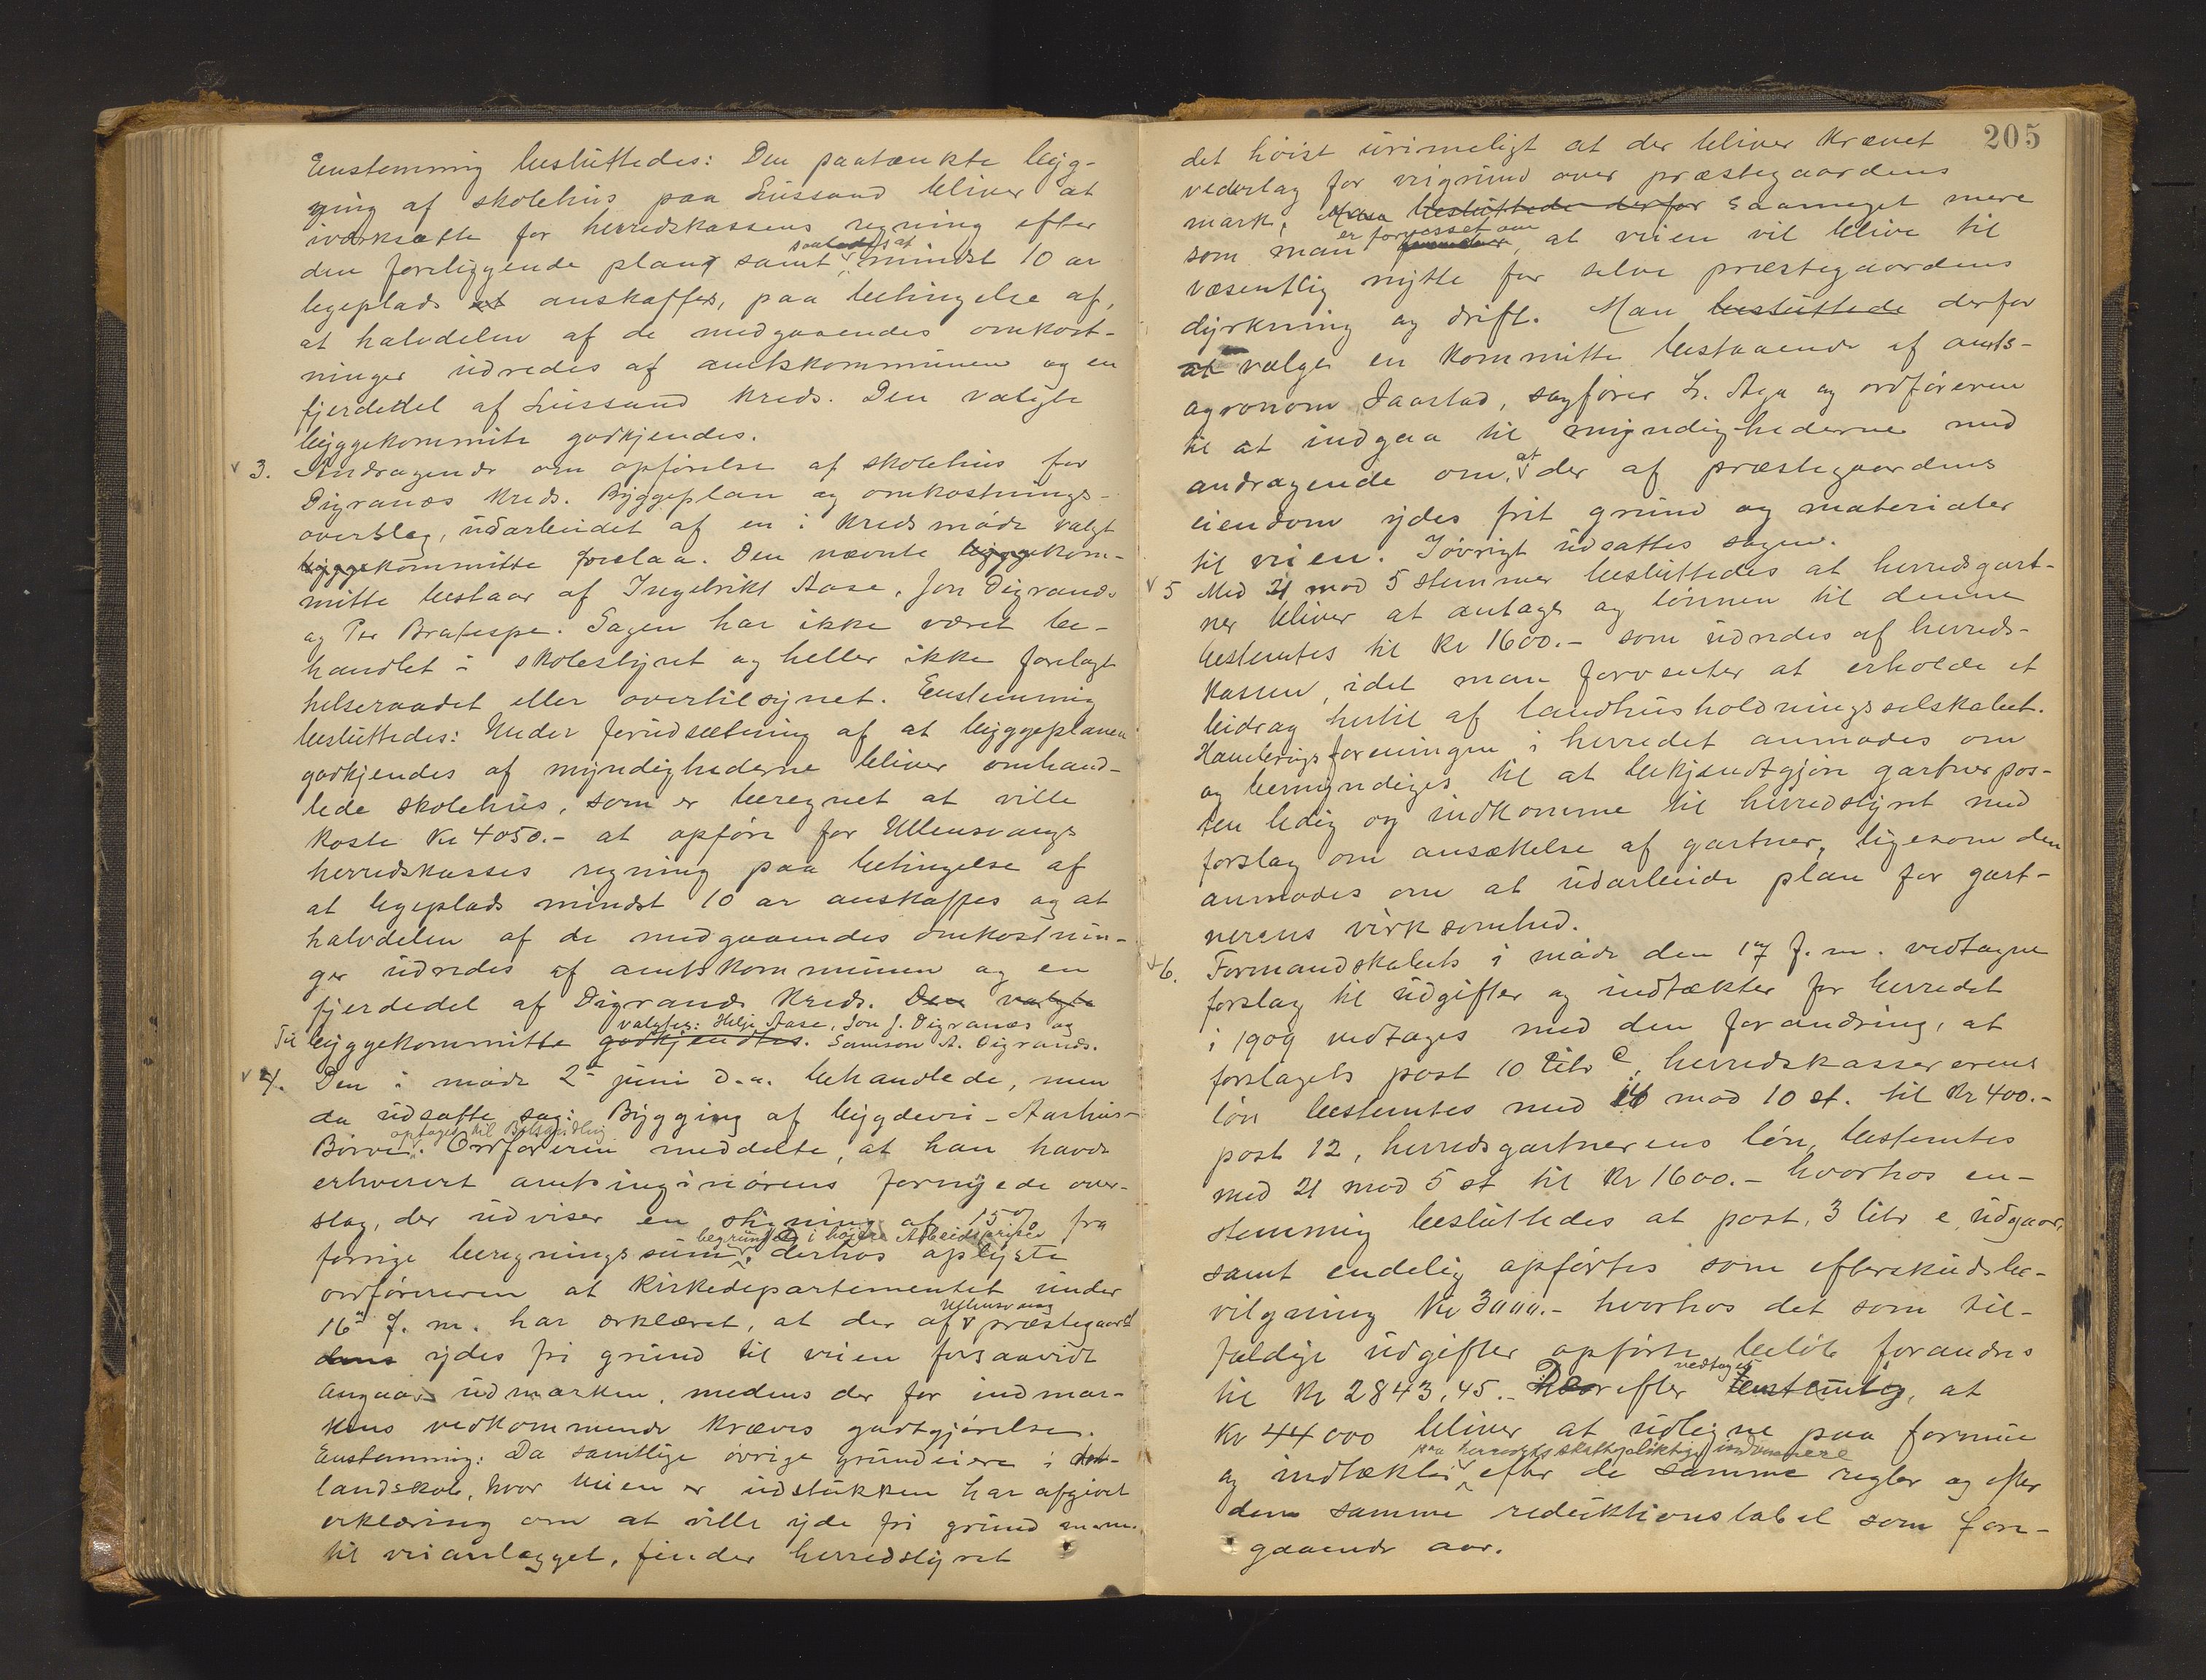 Eenstemmig besluttedes: Den paatænkte byg-
ging af skolehus paa Lussand bliver at
iværksætte for herredskassens regning efter
den foreliggende plan samt saaledes at mindst 10 ar
legeplads at anskaffes, paa betingelse af,
at halvdelen af de medgaaendes omkost-
ninger udredes af amtskommunen og en
fjerdedel af Lussand kreds. Den valgte
byggekommite godkjendes.
v 3. Andragende om opførelse af skolehus for
Digranæs kreds. Byggeplan og omkostnings-
overslag, udarbeidet af en i kredsmøde valgt
byggekommitte forelaa. Den nævnte byggekom-
mitte bestaar af Ingebrikt Aase, Jon Digranæs
og Per Bratespe. Sagen har ikke været be-
handlet i skolestyret og heller ikke forelagt
helseraadet eller overtilsynet. Eenstemmig
besluttedes: Under forudsætning af at byggeplanen
godkjendes af myndighederne bliver omhand-
lede skolehus, som er beregnet at ville
koste Kr 4050.- at opføre for Ullensvangs
herredskasses regning paa betingelse af
at legeplads mindst 10 ar anskaffes og at
halvdelen af de medgaaendes omkostnin-
ger udredes af amtskommunen og en
fjerdedel af Digranæs kreds. Den valgte
valgtes: Helje Aase, Jon J. Digranæs og
Til byggekommitte godkjendtes. Samson A. Digranæs.
v 4. Den i møde 2den juni d.a. behandlede, men
da udsatte sag: Bygging af bygdevei - Aarhus-
optages til Behandling
Børve. Ordføreren meddelte, at han havde
erhvervet amtsingeniørens fornyede over-
slag, der udviser en stigning af 15% fra
begrundet i høiere Arbeidspriser
forrige beregningssum, derhos oplyste
ordføreren at Kirkedepartementet under
16de f. m. har erklæret, at der af Ullensvang præstegaard
dens ydes fri grund til veien forsaavidt
angaar udmarken, medens der for indmar-
kens vedkommende kræves godtgjørelse.
Eenstemmig: Da samtlige øvrige grundeiere i det
landskab, hvor veien er udstukken har afgivet
erklæring om at ville yde fri grund m.m.
til veianlægget, finder herredstyret
205
det høist urimeligt at der bliver krævet
vederlag for veigrund over præstegaardens
mark, Man besluttede derfor saameget mere
som man er forvisset om, at veien vil blive til
væsentlig nytte for selve præstegaardens
dyrkning og drift. Man besluttede derfor
at vælge en kommitte bestaaende af amts-
agronom Jaastad, sagfører L. Aga og ordføreren
til at indgaa til myndighederne med
andragende om, at der af præstegaardens
eiendom ydes frit grund og materialer
til veien. Iøvrigt udsattes sagen.
v 5 Med 21 mod 5 stemmer besluttedes at herredsgart-
ner bliver at antages og lønnen til denne
bestemtes til Kr 1600.- som udredes af herreds-
kassen, idet man forventer at erholde et
bidrag hertil af landhusholdningsselskabet.
Havebrugsforeningen i herredet anmodes om
og bemyndiges til at bekjendtgjøre gartnerpos-
ten ledig og indkomme til herredstyret med
forslag om ansættelse af gartner, ligesom den
anmodes om at udarbeide plan for gart-
nerens virksomhed.
v 6. Formandskabets i møde den 17 f. m. vedtagne
forslag til udgifter og indtækter for herredet
i 1909 vedtages med den forandring, at
forslagets post 10 litr c, herredskassererens
løn bestemtes med 16 mod 10 st. til Kr 400.-
post 12, herredsgartnerens løn, bestemtes
med 21 mod 5 st til Kr 1600.- hvorhos en-
stemmig besluttedes at post. 3 litr e, udgaar,
samt endelig opførtes som efterskudsbe-
vilgning Kr 3000.- hvorhos det som til-
fældige udgifter opførte beløb forandres
til Kr 2843,45.- Derefter vedtoges eenstemmig, at
Kr 44000 bliver at udligne paa formue
paa herredets skattepligtige indvaanere
og indtækter efter de samme regler og efter
den samme reduktionstabel som fore-
gaaende aar.